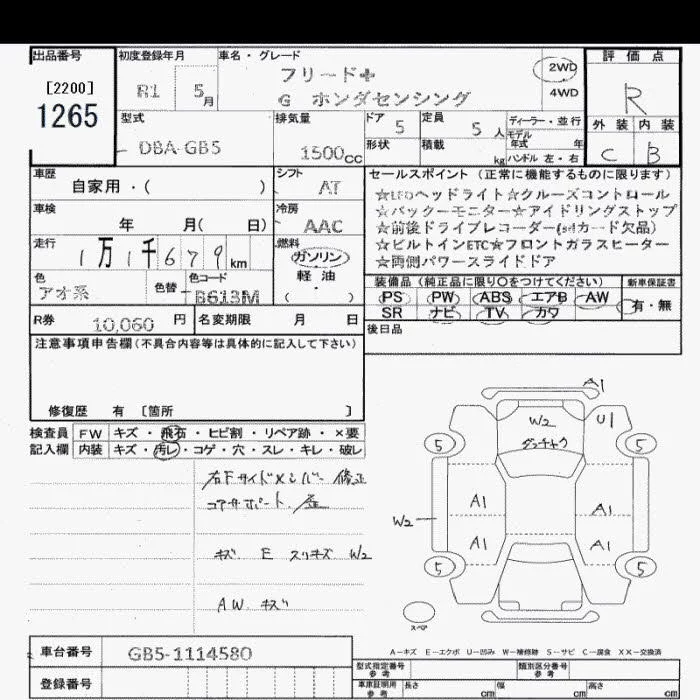 出品番号
[2200]
1265
初度登録年月
R1 5月
車名・グレード
フリード+
G ホンダセンシング
2WD
4WD
評価点
R
外装 内装
C B
型式
DBA-GB5
排気量
1500cc
ドア 5
形状
定員 5人
積載 kg
ディーラー・並行
モデル年式 年
ハンドル 左・右
車歴
自家用・( )
シフト
AT
車検
年 月( 日)
冷房
AAC
走行
1万1千679km
燃料
ガソリン
軽油
( )
色
アオ系
色替
色コード
B613M
セールスポイント (正常に機能するものに限ります)
☆LEDヘッドライト☆クルーズコントロール
☆バックーモニター☆アイドリングストップ
☆前後ドライブレコーダー(sdカード欠品)
☆ビルトインETC☆フロントガラスヒーター
☆両側パワースライドドア
装備品(純正品に限り〇をつけてください)
新車保証書
PS PW ABS エアB AW
SR ナビ TV カワ
有・無
R券 10,060 円
名変期限 月 日
後日品
注意事項申告欄(不具合内容等は具体的に記入して下さい)
修復歴 有 [箇所 ]
検査員
記入欄
FW キズ・飛石・ヒビ割・リペア跡・×要
内装 キズ・汚レ・コゲ・穴・スレ・キレ・破レ
右Fサイドメンバー 修正
コアサポート 歪
キズ E スリキズ W2
AW キズ
A1
W2
U1
5
5
A1
A1
W2
A1
A1
5
5
スペア
A-キズ E-エクボ U-凹み W-補修跡 S-サビ C-腐食 XX-交換済
車台番号
GB5-1114580
登録番号
型式指定番号
参考
類別区分番号
参考
車庫証明用
参考
長さ cm
幅 cm
高さ cm